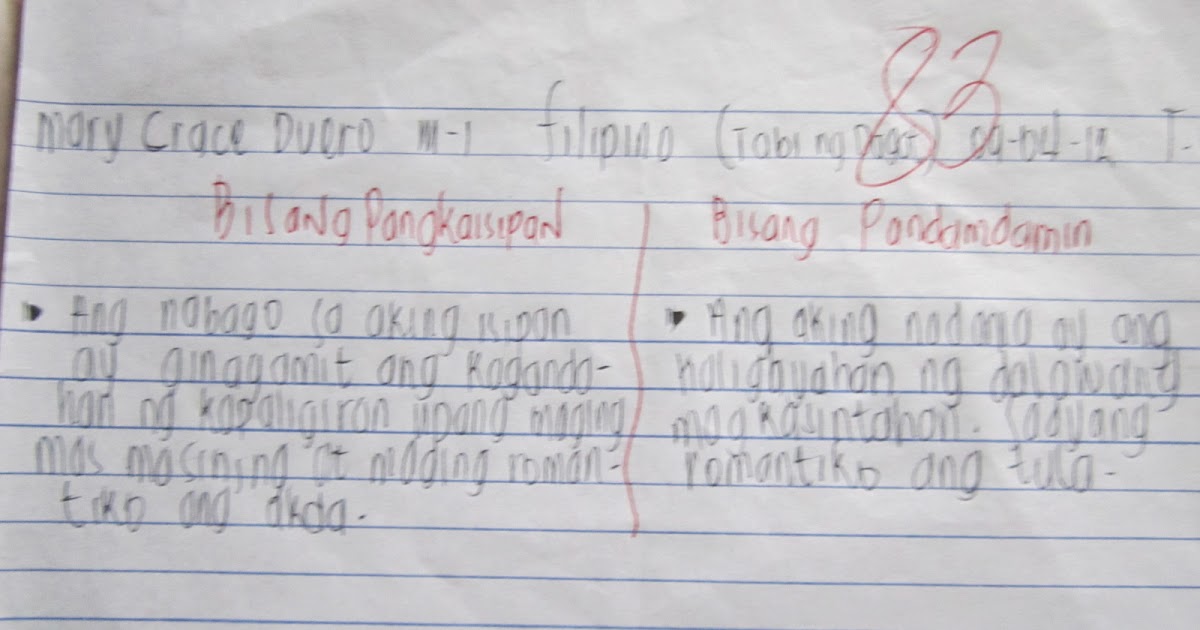 83
Mary Grace Duero M-1 Filipino (Tabing Dagat) 04-12 T-
Bisang Pangkaisipan
Ang nabago sa aking isipan
ay ginagamit ang kaganda-
han ng kapaligiran upang maging
mas masining at maging roman-
tiko ang akda.
Bisang Pandamdamin
Ang aking nadama ay ang
kaligayahan ng dalawang
magkasintahan. Sadyang
romantiko ang tula.